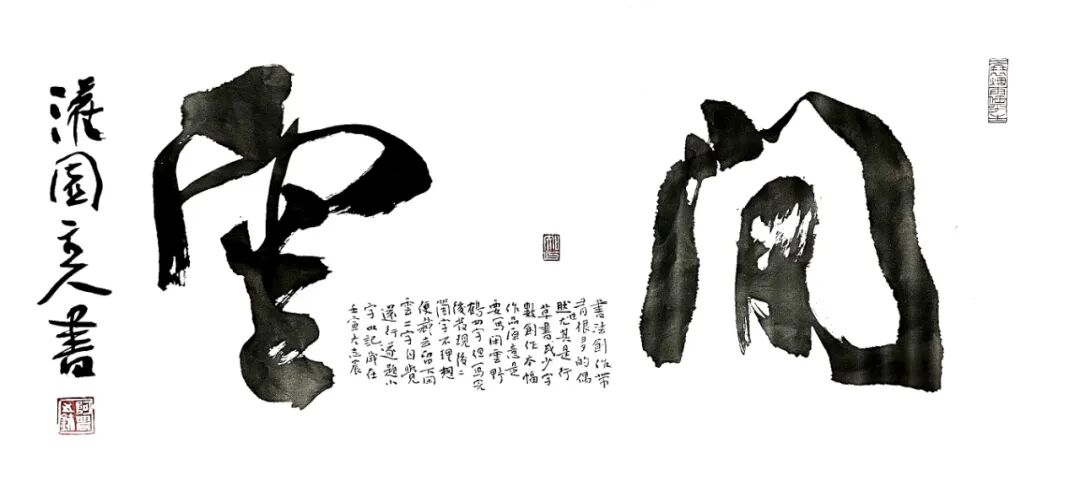 閒
雲
書法創作常
有很多的偶
然尤其是行
草書或少字
數創作本幅
作品原意是
要寫閒雲野
鶴四字但寫完
後發現後二
個字不理想
便裁去留下閒
雲二字自覺
還行遂題小
字以記歲在
壬寅
灌園主人書